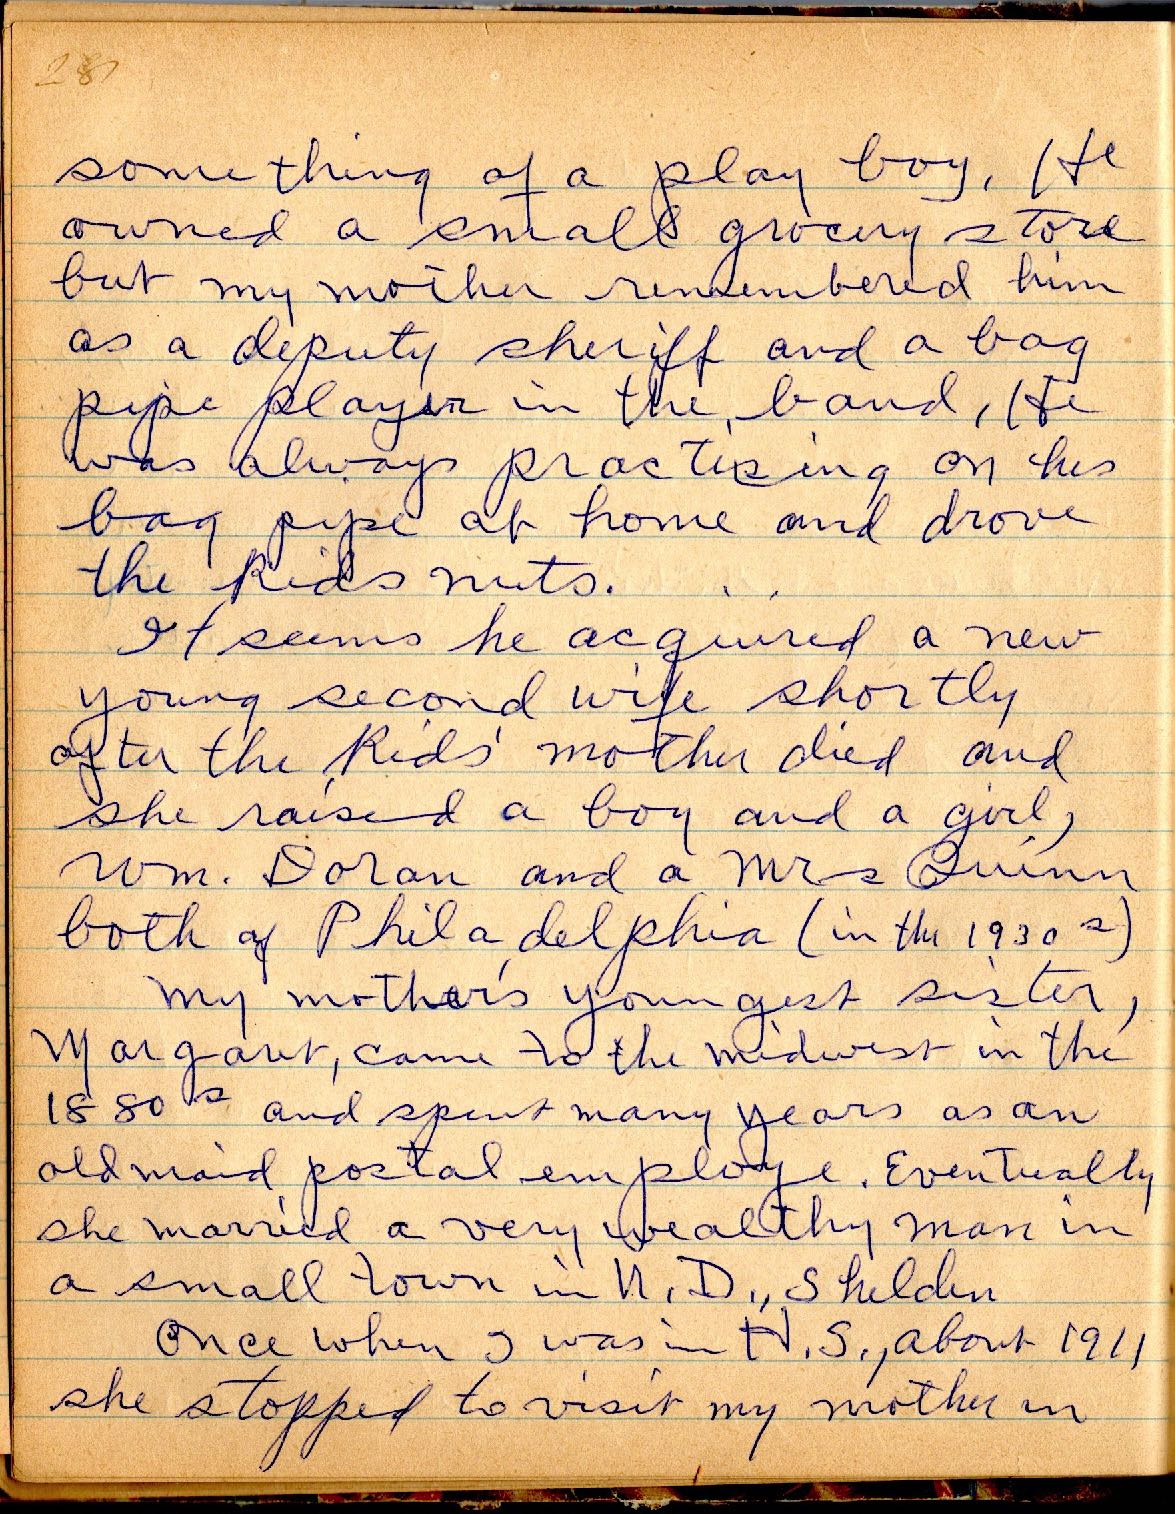 28
something of a play boy. He
owned a small grocery store
but my mother remembered him
as a deputy sheriff and a bag
pipe player in the band, He
was always practising on his
bag pipe at home and drove
the kids nuts.
It seems he acquired a new
young second wife shortly
after the kids' mother died and
she raised a boy and a girl,
Wm. Doran and a Mrs Quinn
both of Philadelphia (in the 1930s)
My mother's youngest sister,
Margaret, came to the midwest in the
1880s and spent many years as an
old maid postal employe. Eventually
she married a very wealthy man in
a small town in N.D., Shelden
Once when I was in H.S., about 1911
she stopped to visit my mother in